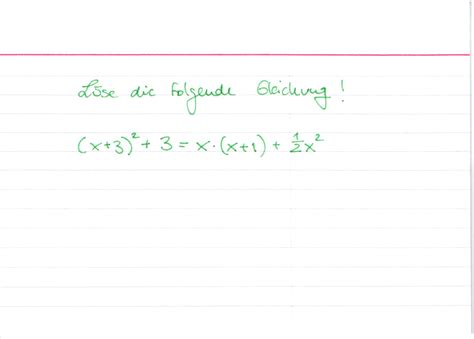 Löse die folgende Gleichung!
(x+3)² + 3 = x·(x+1) + ½x²